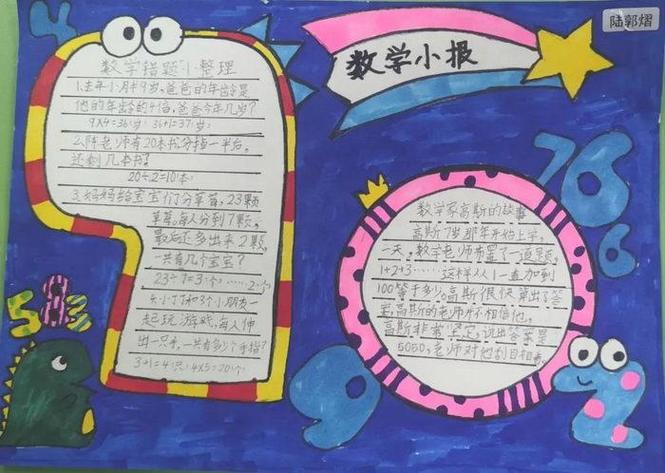 陆郭熠
数学小报
数学错题小整理
1.去年小月9岁,爸爸的年龄是
他的年龄的4倍,爸爸今年几岁?
9×4=36(岁) 36+1=37(岁)
2.陈老师有20本书分掉一半后,
还剩几本书?
20÷2=10(本)
3.妈妈给宝宝们分草莓,23颗
草莓,每人分到7颗,
最后还多出来2颗,
一共有几个宝宝?
23÷7=3(个)……2(个)
4.小丁丁和3个小朋友一
起玩游戏,每人伸
出一只手,一共有多少个手指?
3+1=4(只) 4×5=20(个)
数学家高斯的故事
高斯7岁那年开始上学,
一天,数学老师布置了一道题,
1+2+3……这样从1一直加到
100等于多少。高斯很快算出了答
案,高斯的老师不相信他,
高斯非常坚定,说出答案是
5050,老师对他刮目相看。
4
5 1 3
7 6
6
9
2